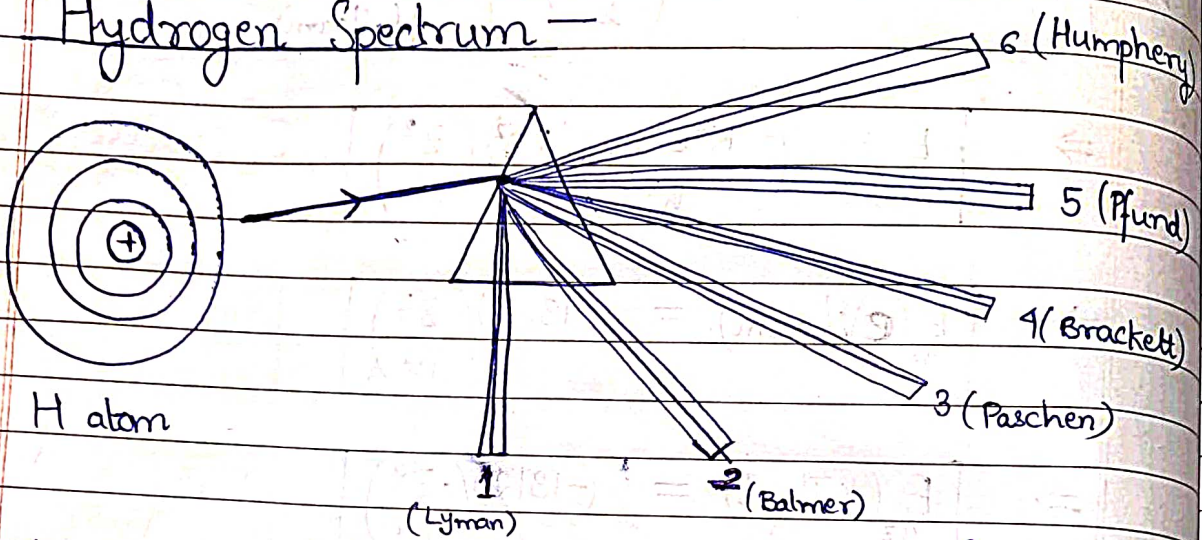 Hydrogen Spectrum —
6 (Humphery)
5 (Pfund)
4 (Brackett)
3 (Paschen)
2 (Balmer)
1
(Lyman)
+
H atom